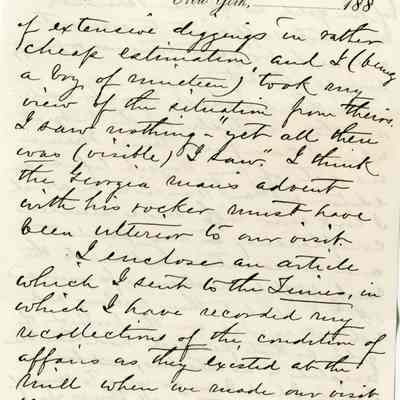 New York, 188
of extensive diggings in rather
cheap estimation, and I (being
a boy of nineteen) took my
view of the situation from theirs.
I saw nothing - "yet all there
was (visible) I saw". I think
the Georgia man's advent
with his rocker must have
been ulterior to our visit
I enclose an article
which I sent to the Times, in
which I have recorded my
recollections of the condition of
affairs as they existed at the
mill when we made our visit